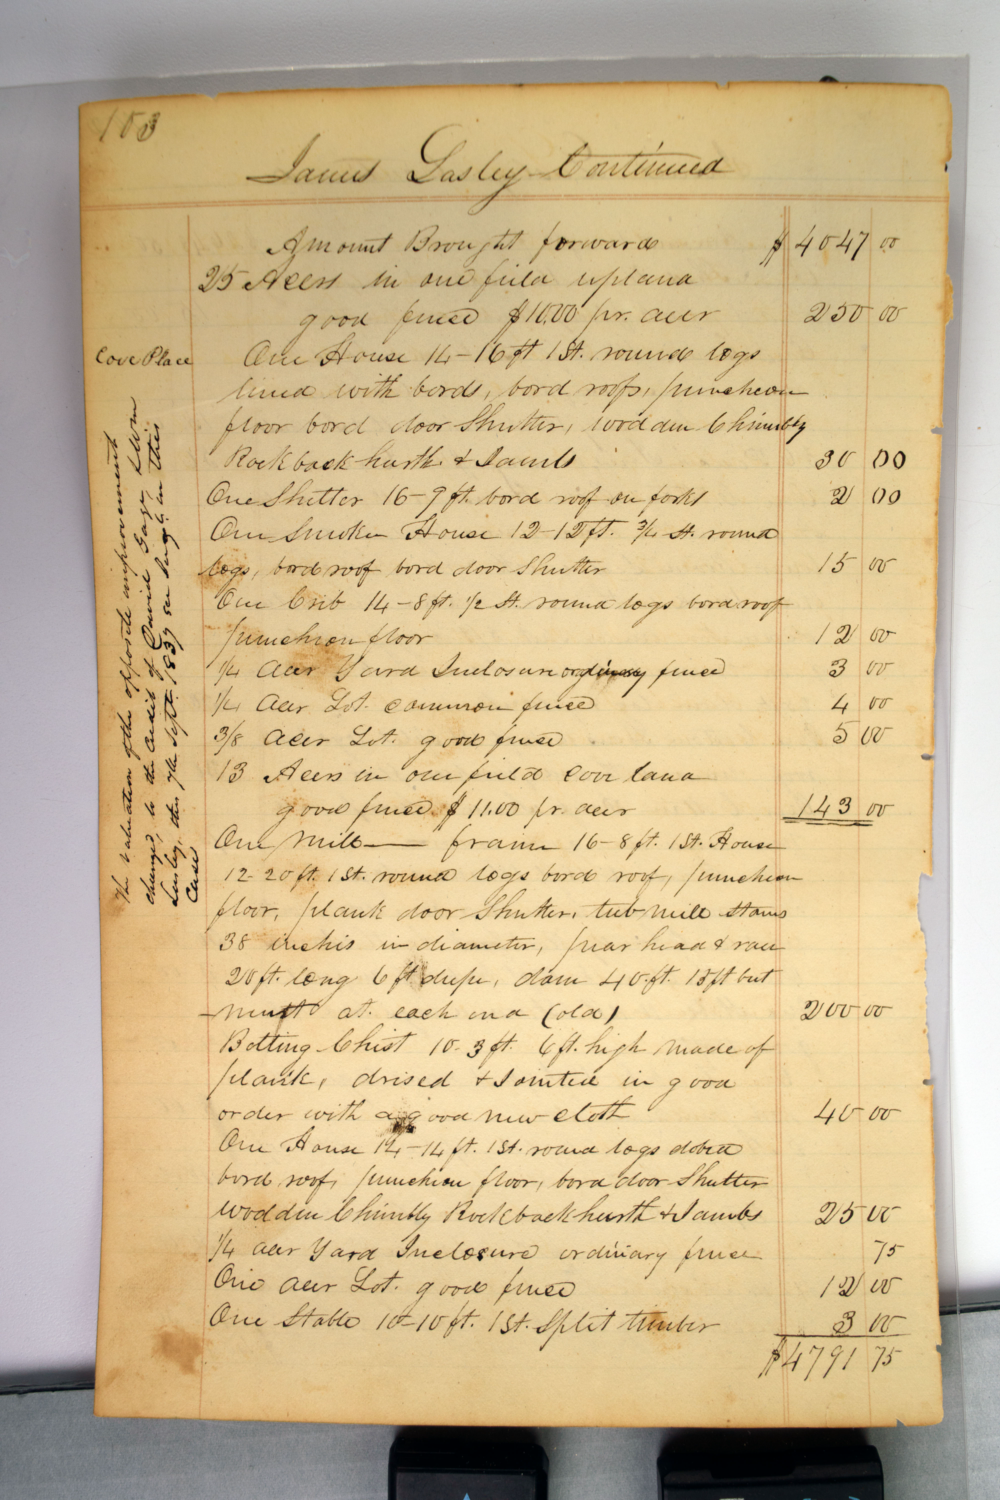 103
James Lasley Continued
Amount Brought forward $ 4047 00
25 Acers in one field upland
good fence $10.00 pr. acer 250 00
Cove Place
One House 14-16 ft 1 St. round logs
lined with bords, bord roofs, puncheon
floor bord door Shutter, wodden Chimbly
Rockback hurth & Jambs 30 00
One Shelter 16-9 ft. bord roof on forks 2 00
One Smoke House 12-12 ft. 3/4 St. round
logs, bord roof bord door Shutter 15 00
One Crib 14-8 ft. 1/2 St. round logs bord roof
puncheon floor 12 00
1/4 Acer Yard Inclosure ordinary fence 3 00
1/4 Acer Lot. common fence 4 00
3/8 Acer Lot. good fence 5 00
13 Acers in one field cove land
good fence $ 11.00 pr. acer 143 00
One Mill — frame 16-8 ft. 1 St. House
12-20 ft. 1 St. round logs bord roof, puncheon
floor, plank door Shutter, tub mill stons
38 inchis in diameter, fear head & race
20 ft. long 6 ft deepe, dam 40 ft. 18 ft but
ment at. each end (old) 200 00
Bolting Chist 10-3 ft. 6 ft. high made of
plank, drised & Jointed in good
order with a good new cloth 40 00
One House 14-14 ft. 1 St. round logs dobed
bord roof, puncheon floor, bord door Shutter
wodden Chimbly Rockback hurth & Jambs 25 00
1/4 acer Yard Inclosure ordinary fence 75
One acer Lot. good fence 12 00
One Stable 10-10 ft. 1 St. Split timber 3 00
$ 4791 75
The valuation of the opposite improvement
changed to the credit of David Gage
Lasley, this 7th Sept. 1837 in this
Case